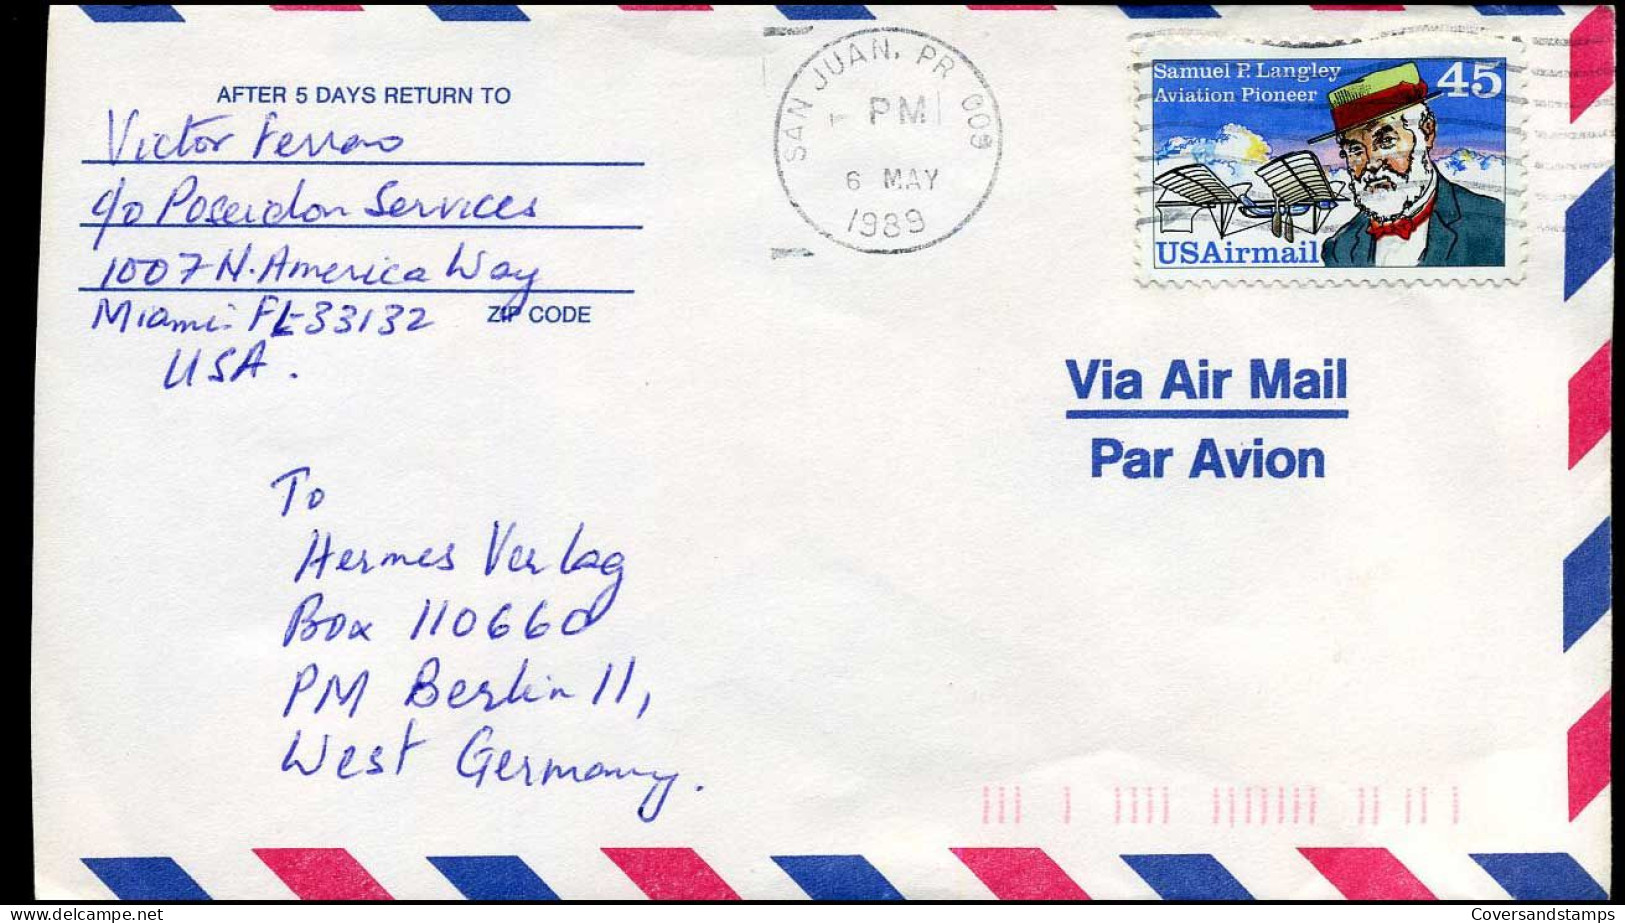 AFTER 5 DAYS RETURN TO
Victor Ferrao
c/o Poseidon Services
1007 N. America Way
Miami FL 33132
ZIP CODE
USA.
SAN JUAN, PR 009
PM
6 MAY
1989
Samuel P. Langley
Aviation Pioneer
45
USAirmail
Via Air Mail
Par Avion
To
Hermes Verlag
Box 110660
PM Berlin 11,
West Germany.
Coversandstamps